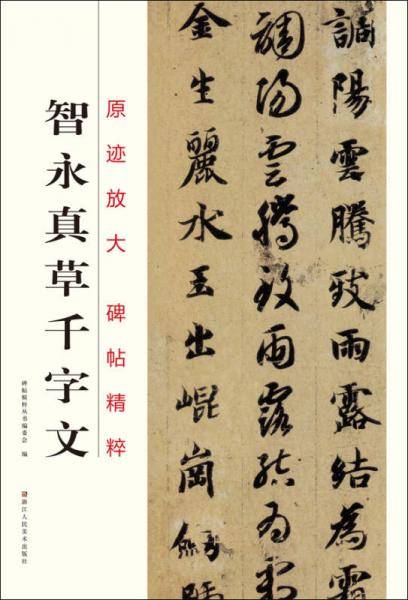 原迹放大 碑帖精粹
智永真草千字文
碑帖精粹丛书编委会 编
浙江人民美术出版社
調陽雲騰致雨露結為霜
調陽雲騰致雨露結為霜
金生麗水玉出崐崗